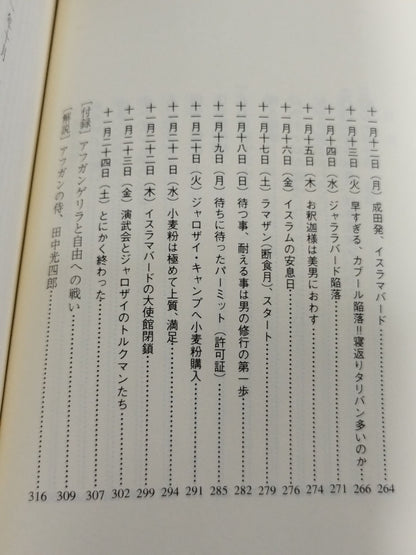 十一月十二日（月）成田発、イスラマバード……264
十一月十三日（火）早すぎる、カブール陥落!!寝返りタリバン多いのか……266
十一月十四日（水）ジャララバード陥落……271
十一月十五日（木）お釈迦様は美男におわす……274
十一月十六日（金）イスラムの安息日……276
十一月十七日（土）ラマザン（断食月）、スタート……279
十一月十八日（日）待つ事、耐える事は男の修行の第一歩……282
十一月十九日（月）待ちに待ったパーミット（許可証）……285
十一月二十日（火）ジャロザイ・キャンプへ小麦粉購入……291
十一月二十一日（水）小麦粉は極めて上質、満足……294
十一月二十二日（木）イスラマバードの大使館閉鎖……299
十一月二十三日（金）演武会とジャロザイのトルクマンたち……302
十一月二十四日（土）とにかく終わった……307
［付録］アフガンゲリラと自由への戦い……309
［解説］アフガンの侍、田中光四郎……316